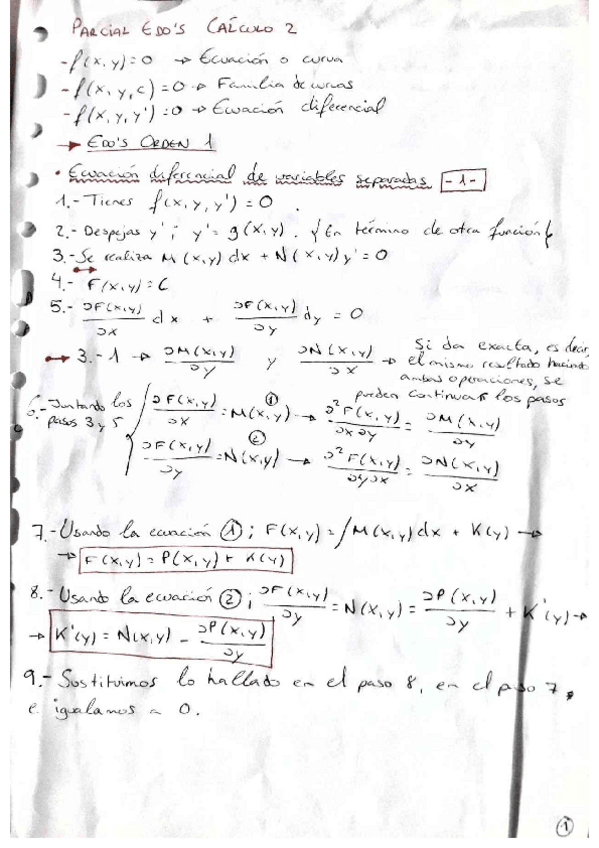 PARCIAL EDO'S CÁLCULO 2
- f(x,y)=0 → Ecuación o curva
- f(x,y,c)=0 → Familia de curvas
- f(x,y,y')=0 → Ecuación diferencial
→ EDO'S ORDEN 1
• Ecuación diferencial de variables separadas -1-
1.- Tienes f(x,y,y')=0.
2.- Despejas y'; y'=g(x,y). {En término de otra función}
3.- Se realiza M(x,y)dx + N(x,y)y'=0
4.- F(x,y)=C
5.- ∂F(x,y)/∂x dx + ∂F(x,y)/∂y dy = 0
→ 3.-1 → ∂M(x,y)/∂y y ∂N(x,y)/∂x → Si da exacta, es decir,
el mismo resultado haciendo
ambas operaciones, se
pueden continuar los pasos
6.- Juntando los pasos 3 y 5
∂F(x,y)/∂x = M(x,y) ① → ∂²F(x,y)/∂x∂y = ∂M(x,y)/∂y
∂F(x,y)/∂y = N(x,y) ② → ∂²F(x,y)/∂y∂x = ∂N(x,y)/∂x
7.- Usando la ecuación ①; F(x,y)=∫M(x,y)dx + K(y) →
→ F(x,y)=P(x,y)+K(y)
8.- Usando la ecuación ②; ∂F(x,y)/∂y = N(x,y) = ∂P(x,y)/∂y + K'(y) →
→ K'(y) = N(x,y) - ∂P(x,y)/∂y
9.- Sustituimos lo hallado en el paso 8, en el paso 7,
e igualamos a 0.
①